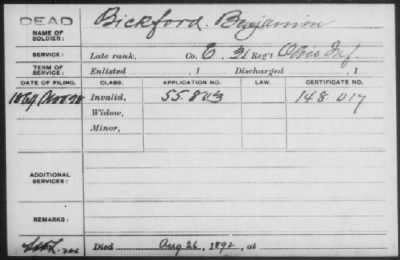 DEAD
NAME OF SOLDIER: Bickford, Benjamin
SERVICE: Late rank, Co. G, 31 Reg't Ohio Inf.
TERM OF SERVICE: Enlisted , 1 Discharged , 1
DATE OF FILING. CLASS. APPLICATION NO. LAW. CERTIFICATE NO.
Invalid, 55.803 148.017
Widow,
Minor,
ADDITIONAL SERVICES:
REMARKS:
Died Aug 26, 1892, at